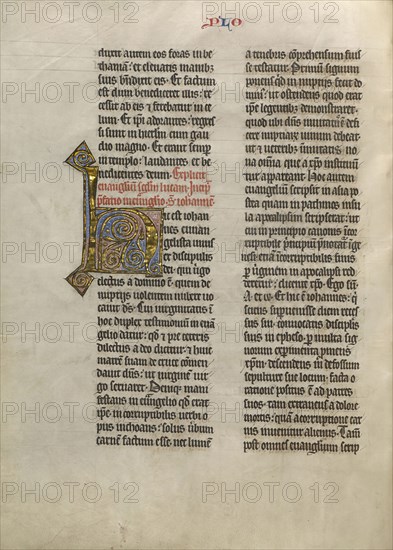 PLO
duxit autem eos foras in be
thaniā: et elevatis manibz
suis bn̄dixit eis. Et factum
est dum benediceret illis: re
cessit ab eis et ferebatur in ce
lum. Et ip̄i adorantes: regres
si sunt in iherlm̄ cum gau
dio magno. Et erant semp̄
in templo: laudantes et be
nedicentes deum. Explicit
euangliū sc̄dm lucam. Incip̄
hic est iohan
nes euan
gelista unus
ex discipulis
dei: qui v̄go
electus a domino ē. quem de
nuptijs volentem nubere vo
cavit ds̄. Cui virginitatis ī
hoc duplex testimonium in euā
gelio datur: qd̄ et pre ceteris
dilectus a deo dicitur: et huic
matrem suam de cruce cōmen
davit dn̄s: ut virginē virgo
servaret. Deniqz mani
festans in euāgelio qd̄ erat
ip̄e: incorruptibilis verbi o
pus inchoans: solus v̄bum
carnem factum esse. nec lumē
a tenebris cōprehensum fuis
se testatur. Primū signum
ponens qd̄ in nuptijs fecit do
minus: ut ostendens quod erat
ip̄e: legentibz demonstraret.
quod ubi dn̄s invitatus ē: defi
cere nuptiarum vinum debeat
ut et veteribz īmutatis: no
va omīa. que a xp̄o instituū
tur appareant. Hoc autem
euangeliū scripsit in asia: po
stea quam in pathmos insu
la apocalipsim scripserat: ut
cui in principio canonis īcor
ruptibile p̄ncipiū p̄notatur ī ge
nesi: etiā īcorruptibilis finis
p̄ v̄ginem in apocalipsi red
deretur: dicente xp̄o. Ego sū
A. et ω. Et hic ē iohannes: q̄
sciens supvenisse diem reces
sus sui. convocatis discipulis
suis in epheso. p̄ multa sig
norum experimenta p̄mens
xp̄m: descendens in defossum
sepulture sue locum. facta o
ratione positus ē ad patres
suos. tam extraneus a dolore
mortis: quā a corruptione car
nis invenitur alienus. Tam̄
post omnes euangliū scrip